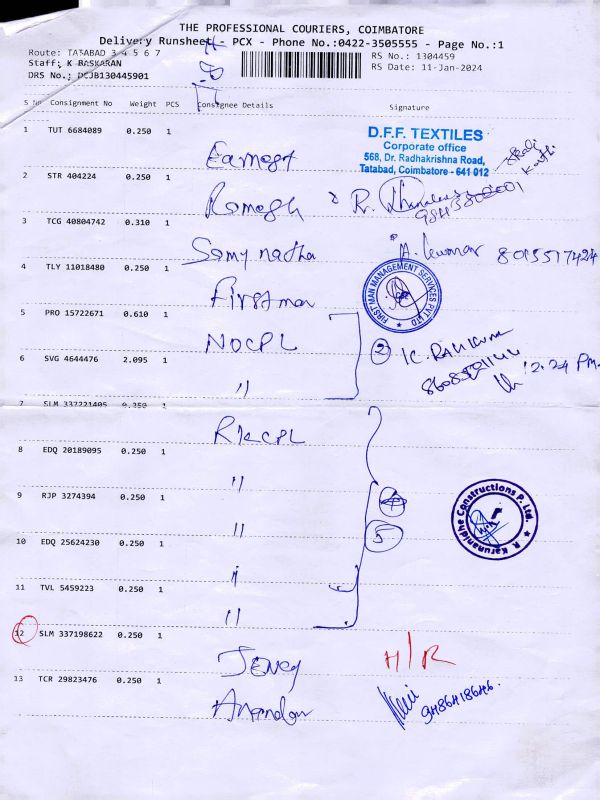 THE PROFESSIONAL COURIERS, COIMBATORE
Delivery Runsheet - PCX - Phone No.:0422-3505555 - Page No.:1
Route: TATABAD 3 4 5 6 7
RS No.: 1304459
Staff: K BASKARAN
RS Date: 11-Jan-2024
DRS No.: DCJB130445901
S No Consignment No Weight PCS Consignee Details Signature
1 TUT 6684089 0.250 1
D.F.F. TEXTILES
Corporate office
568, Dr. Radhakrishna Road,
Tatabad, Coimbatore - 641 012
2 STR 404224 0.250 1
Ramesh
3 TCG 40804742 0.310 1
Samy nadha A. Kumar
4 TLY 11018480 0.250 1
FIRST MAN MANAGEMENT SERVICES PVT LTD
First man
5 PRO 15722671 0.610 1
NOCPL
2
6 SVG 4644476 2.095 1
12.24 PM
"
7 SLM 337221405 0.250 1
RKCPL
8 EDQ 20189095 0.250 1
"
9 RJP 3274394 0.250 1
R. Karunanidhe Constructions P. Ltd.
"
5
10 EDQ 25624230 0.250 1
"
11 TVL 5459223 0.250 1
"
12 SLM 337198622 0.250 1
Jency H/R
13 TCR 29823476 0.250 1
Anandan